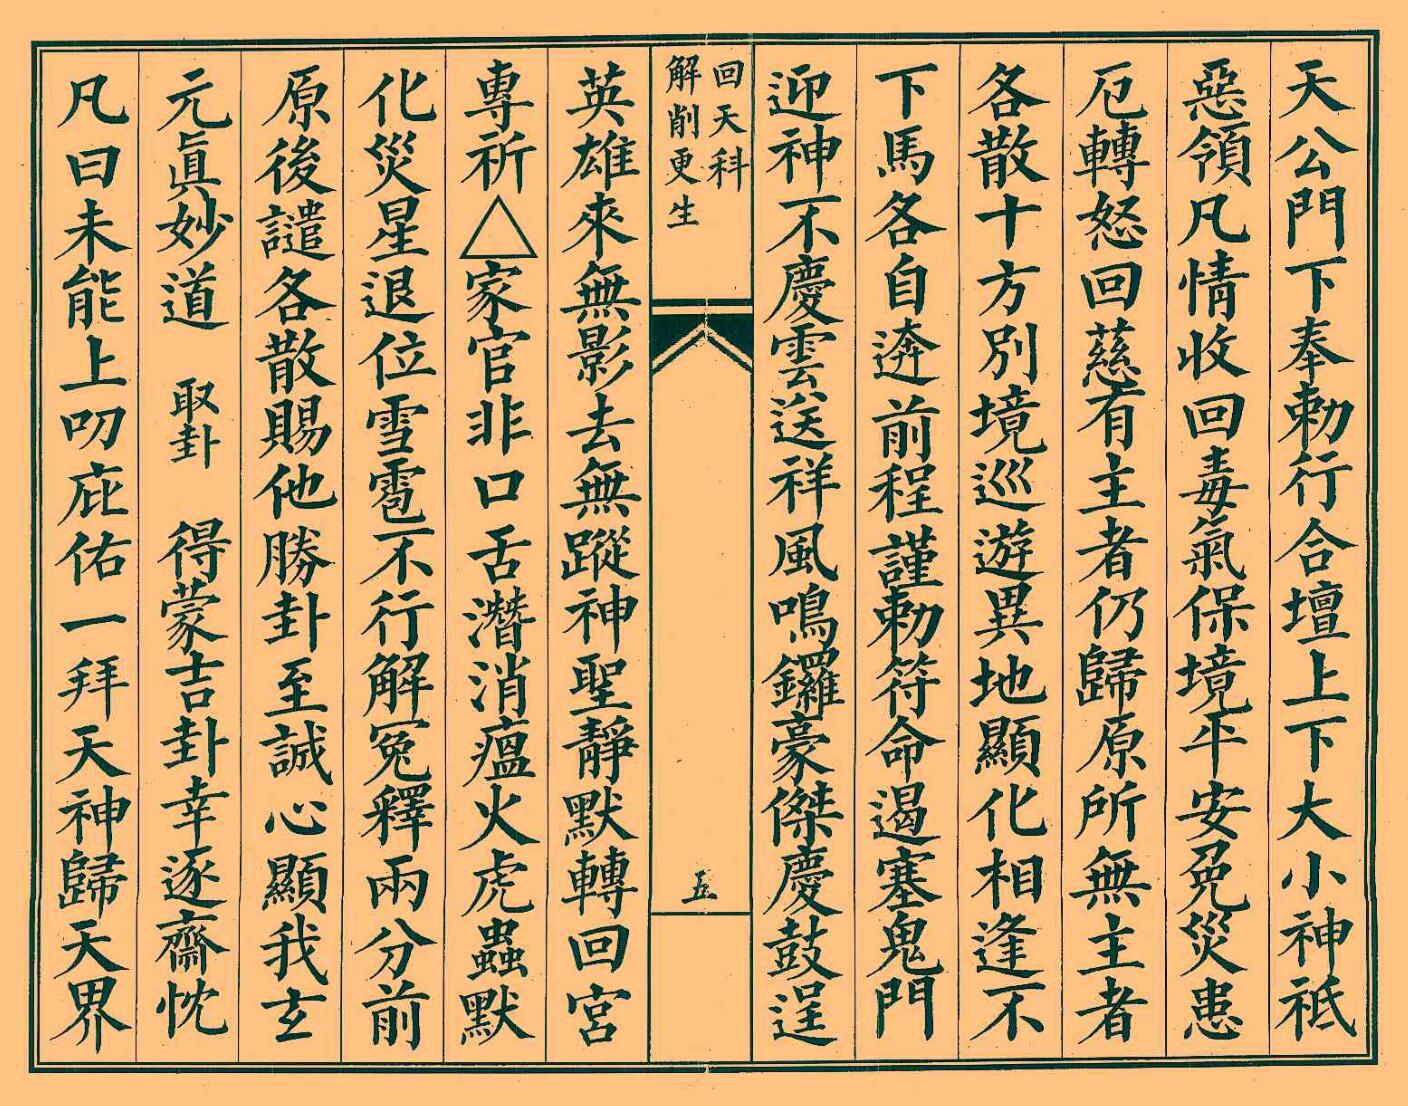 天公門下奉勅行合壇上下大小神祗
惡領凡情收回毒氣保境平安免災患
厄轉怒回慈有主者仍歸原所無主者
各散十方別境巡遊異地顯化相逢不
下馬各自逩前程謹勅符命遏塞鬼門
迎神不慶雲送祥風鳴鑼豪傑慶鼓逞
回天科
解削更生
五
英雄來無影去無蹤神聖靜默轉回宮
專祈△家官非口舌潛消瘟火虎蟲默
化災星退位雪雹不行解冤釋兩分前
原後譴各散賜他勝卦至誠心顯我玄
元眞妙道 取卦 得蒙吉卦幸逐齋忱
凡曰未能上叨庇佑一拜天神歸天界